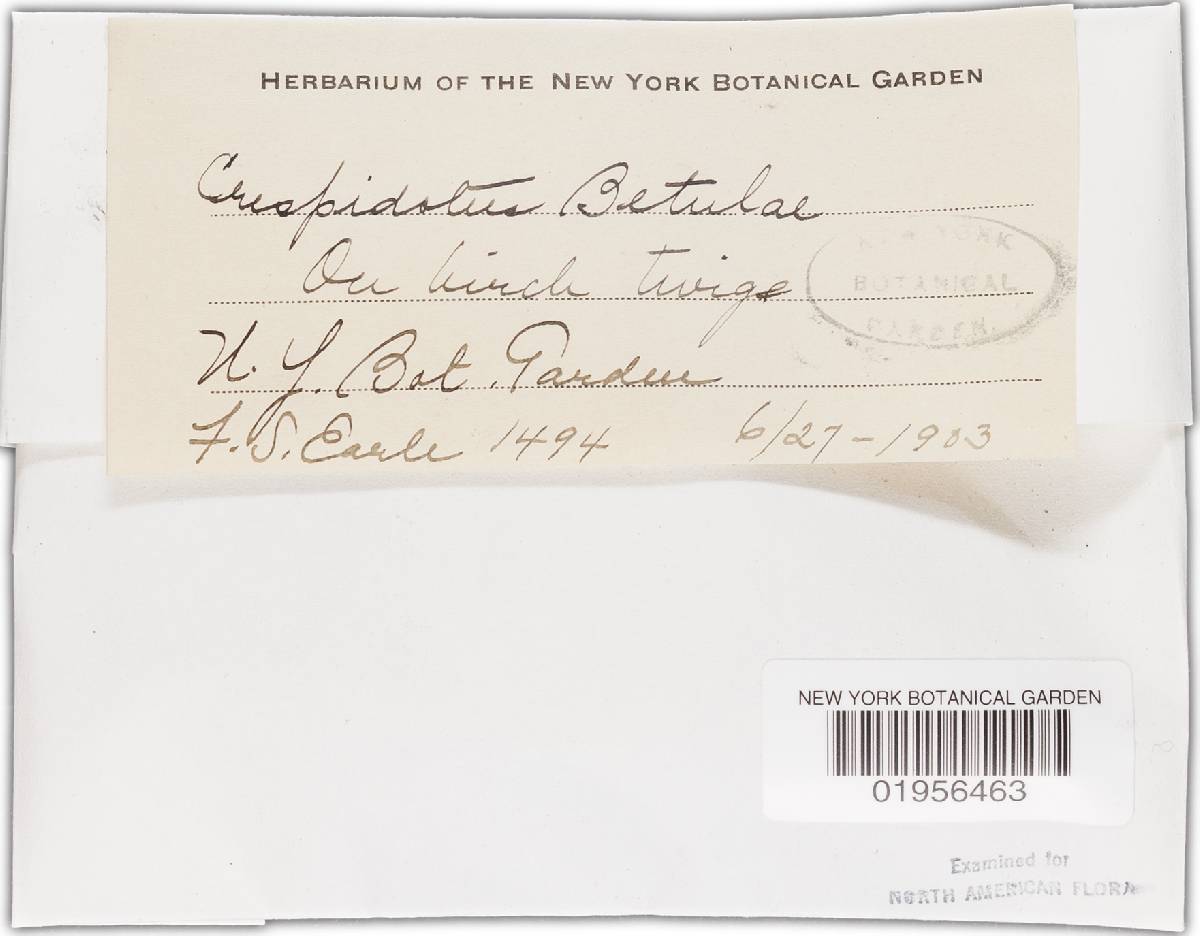 HERBARIUM OF THE NEW YORK BOTANICAL GARDEN
Crepidotus Betulae
On birch twigs
NEW YORK
BOTANICAL
GARDEN.
N. Y. Bot. Garden
F. S. Earle 1494 6/27-1903
NEW YORK BOTANICAL GARDEN
01956463
Examined for
NORTH AMERICAN FLORA